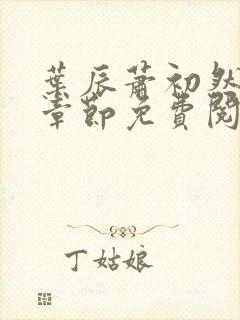 葉辰蕭初然
章節免費閱
丁姑娘